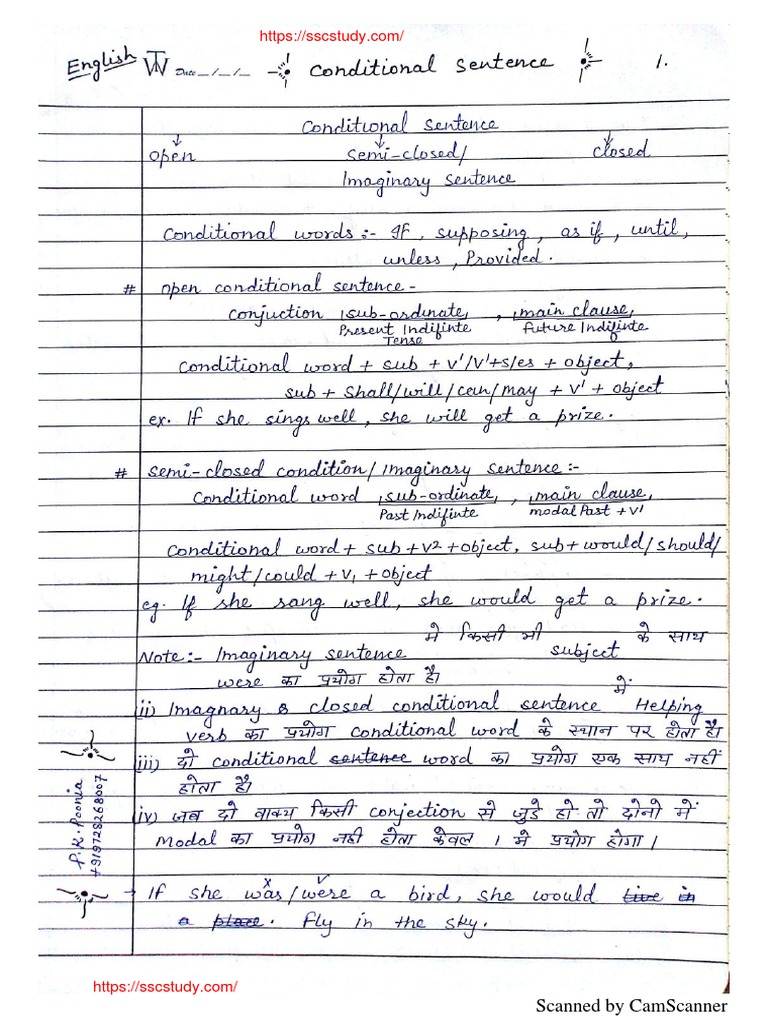 https://sscstudy.com/
English TW Date _/_/_ Conditional Sentence 1.
Conditional sentence
open semi-closed/ closed
Imaginary sentence
Conditional words:- If, supposing, as if, until,
unless, Provided.
# open conditional sentence -
Conjuction, sub-ordinate, , main clause,
Present Indifinte Future Indifinte
Tense
Conditional word + sub + v'/v'+s/es + object,
sub + shall/will/can/may + v' + object
ex. If she sings well, she will get a prize.
# semi-closed condition/Imaginary sentence:-
Conditional word, sub-ordinate, , main clause,
Past Indifinte modal Past + v'
Conditional word + sub + v2 + object, sub + would/should/
might/could + v1 + object
eg. If she sang well, she would get a prize.
Note:- Imaginary sentence मे किसी भी subject के साथ
were का प्रयोग होता है।
ii) Imagnary & closed conditional sentence में Helping
verb का प्रयोग conditional word के स्थान पर होता है।
iii) दो conditional sentence word का प्रयोग एक साथ नहीं
होता है।
iv) जब दो वाक्य किसी conjection से जुडे हो तो दोनो में
Modal का प्रयोग नही होता केवल 1 मे प्रयोग होगा।
P.K. Poonia
+919728268007
→ If she was/were a bird, she would live in
x ✓
a place. fly in the sky.
https://sscstudy.com/
Scanned by CamScanner